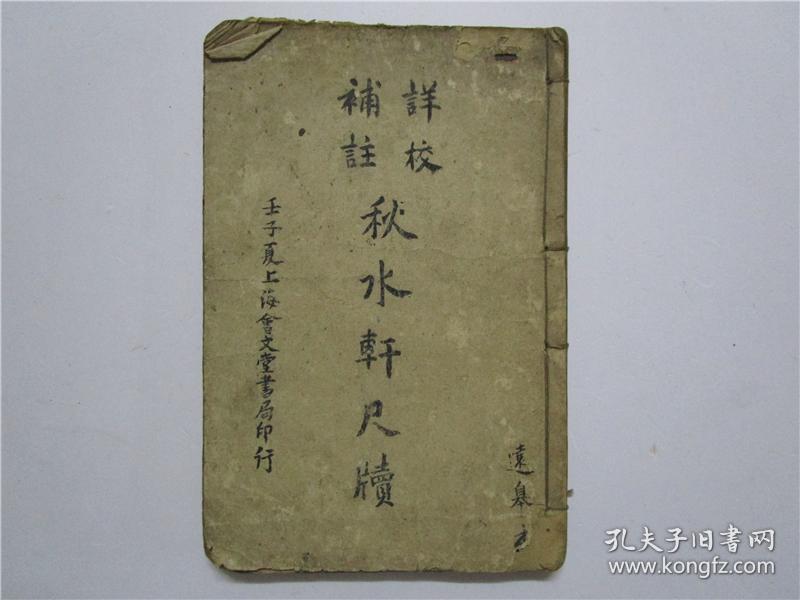 詳校
補註
秋水軒尺牘
壬子夏上海會文堂書局印行
遠皋
孔夫子旧书网
www.kongfz.com